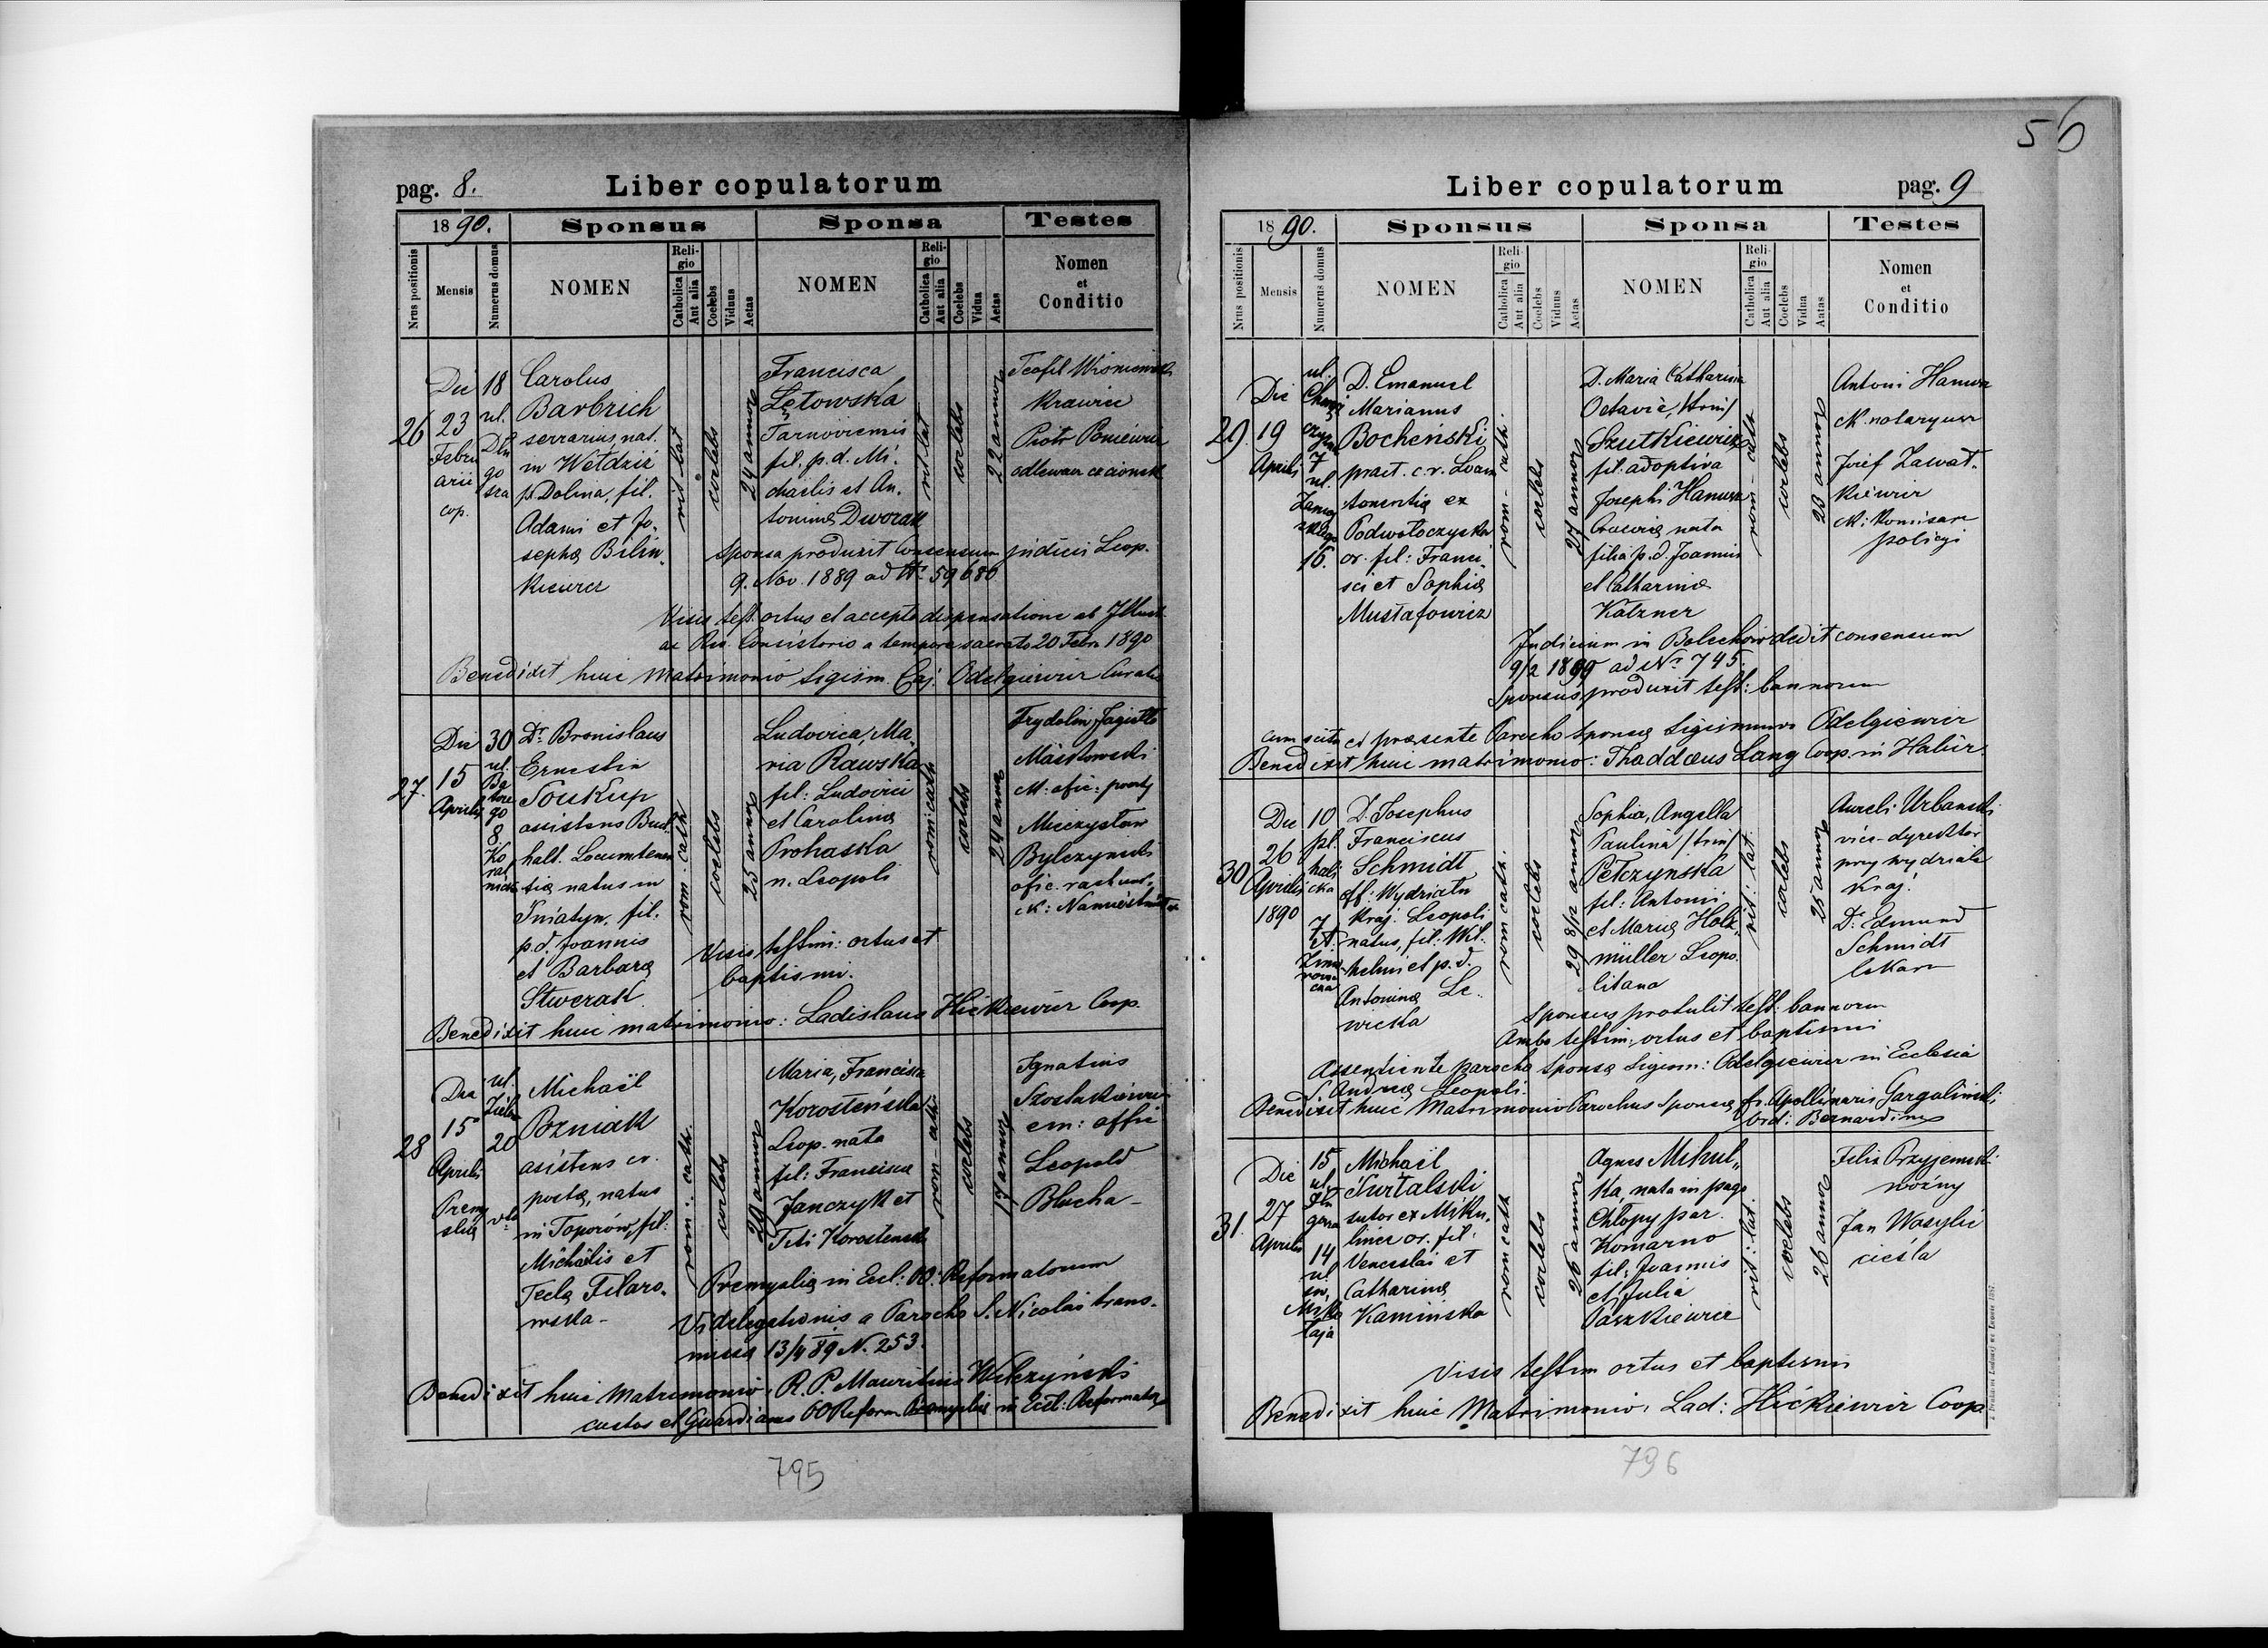 pag. 8.
Liber copulatorum
1890.
Sponsus
Sponsa
Testes
Nrus positionis
Mensis
Numerus domus
NOMEN
Religio
Catholica
Aut alia
Coelebs
Viduus
Aetas
NOMEN
Religio
Catholica
Aut alia
Coelebs
Vidua
Aetas
Nomen
et
Conditio
26
Die
23
Febru
arii
cop.
18
ul.
Dłu
go
sza
Carolus
Barbrich
serrarius, nat.
in Wełdzić
p. Dolina, fil.
Adami et Jo-
sephæ Bilin-
kiewicz
rit lat
coelebs
24 annos
Francisca
Lętowska
Tarnoviensis
fil. p. d. Mi-
chaelis et An-
toninæ Dworak
rit lat
coelebs
22 annos
Teofil Wiśniewski
krawiec
Piotr
odlewacz czcionek
Sponsa produxit Consensum judicii Leop.
9. Nov. 1889 ad Nr. 59686
Visis test. ortus et accepta dispensatione ab
ac Rss. Consistorio a tempore sacrato 20 Febr. 1890
Benedixit huic Matrimonio Sigism. Caj. Odelgiewicz Curatus
27.
Die
15
Aprilis
30
ul.
Ba
tore
go
8
Ko
ral
nicka
Dr. Bronislaus
Ernestin
Soukup
assistens Buch
halt. Locumtenen
tiæ natus in
Śniatyn, fil.
p. d. Joannis
et Barbaræ
Stwerak
rom. cath
coelebs
25 annos
Ludovica, Ma-
ria Rawska
fil: Ludovici
et Carolinæ
Prohaska
n. Leopoli
rom: cath
coelebs
24 anno
Frydolin Jagiełło
Maśkowski
ck: ofic: poczty
Mieczysław
Bylczyński
ofic. rachunk.
ck: Namiestnictwa
Visis testim: ortus et
baptismi.
Benedixit huic matrimonio: Ladislaus Hićkiewicz Coop.
28
Dia
15
Aprilis
Premy
sliæ
ul.
20
Michaël
Pozniak
asistens cr.
postæ, natus
in Toporów, fil:
Michaëlis et
Teclæ Filaro-
wska
rom: cath.
coelebs
29 annos
Maria, Francisca
Korosteńska
Leop. nata
fil: Francisca
Janczyk et
Titi Korosteńsk
rom-cath.
coelebs
17 annos
Ignatius
em: offic
Leopold
Blucha
Premysliæ in Eccl: OO. Reformatorum
Vi delegationis a Parocho S. Nicolai trans-
missa 13/4 89 N. 253.
Benedixit huic Matrimonio: R. P. Mauritius Wilczyński
custos et Guardianus OO Reform. Premysliæ in Eccl: Reformator
795
56
Liber copulatorum
pag. 9
1890.
Sponsus
Sponsa
Testes
Nrus positionis
Mensis
Numerus domus
NOMEN
Religio
Catholica
Aut alia
Coelebs
Viduus
Aetas
NOMEN
Religio
Catholica
Aut alia
Coelebs
Vidua
Aatas
Nomen
et
Conditio
29.
Die
19
Aprilis
ul.
7
ul.
Zamoy
skiego
16.
D. Emanuel
Marianus
Bocheński
pract. c. r. Locum
tenentiæ ex
Podwołoczyska
or. fil: Franci-
sci et Sophiæ
Mustafowicz
rom-cath.
coelebs
27 annos
D. Maria Catharina
Octavie, /trin/
Szutkiewicz
fil: adoptiva
Josephi Hanusz
Craciviæ nata
filia p. d. Joannis
et Catharinæ
Kätzner
rom-cath
coelebs
23 annos
Antoni Hanusz
ck. notaryusz
Józef Zawał-
kiewicz
ck: komisarz
policyi
Judicium in Bolechów dedit consensum
9/2 1890 ad Nr. 745.
Sponsus produxit test: bannorum
cum scitu et præsente Parocho Sponsæ Sigismundo Odelgiewicz
Benedixit huic matrimonio: Thaddæus Lang Coop. in Halicz.
30
Die
26
Aprilis
1890
10
pl.
hali
cka
D. Josephus
Franciscus
Schmidt
off: Wydziału
kraj. Leopoli
natus, fil: Wil-
helmi et p. d.
Antoninæ Le-
wicka
rom cath.
coelebs
29 8/12 annos
Sophia, Angella
Paulina /trin/
Pełczyńska
fil: Antonii
et Mariæ Holz-
müller Leopo-
litana
rit: lat.
coelebs
25 annos
Aureli Urbański
vice-dyrektor
przy wydziale
kraj.
Dr. Edmund
Schmidt
lekarz
Sponsus protulit test: bannorum
Ambo testim: ortus et baptismi
Assentiente parocho Sponsæ Sigism: Odelgiewicz in Ecclesia
S. Andreæ Leopoli
Benedixit huic Matrimonio Parochus Sponsæ fr. Apollinaris Gargaliński
ord: Bernardinus
31.
Die
27
Aprilis
15
ul.
14
ul
św.
Miko
łaja
Michaël
Kurtalski
sutor ex Miku-
lince or. fil:
Venceslai et
Catharinæ
Kamińska
rom cath
coelebs
26 annos
Agnes Mikul-
ka, nata in pago
Chłopy par.
Komarno
fil: Joannis
et Julia
Paszkiewicz
rit: lat.
coelebs
26 annos
Felix Przyjemski
woźny
Jan Wasylie
cieśla
Visis testim ortus et baptismi
Benedixit huic Matrimonio: Lad: Hićkiewicz Coop.
796